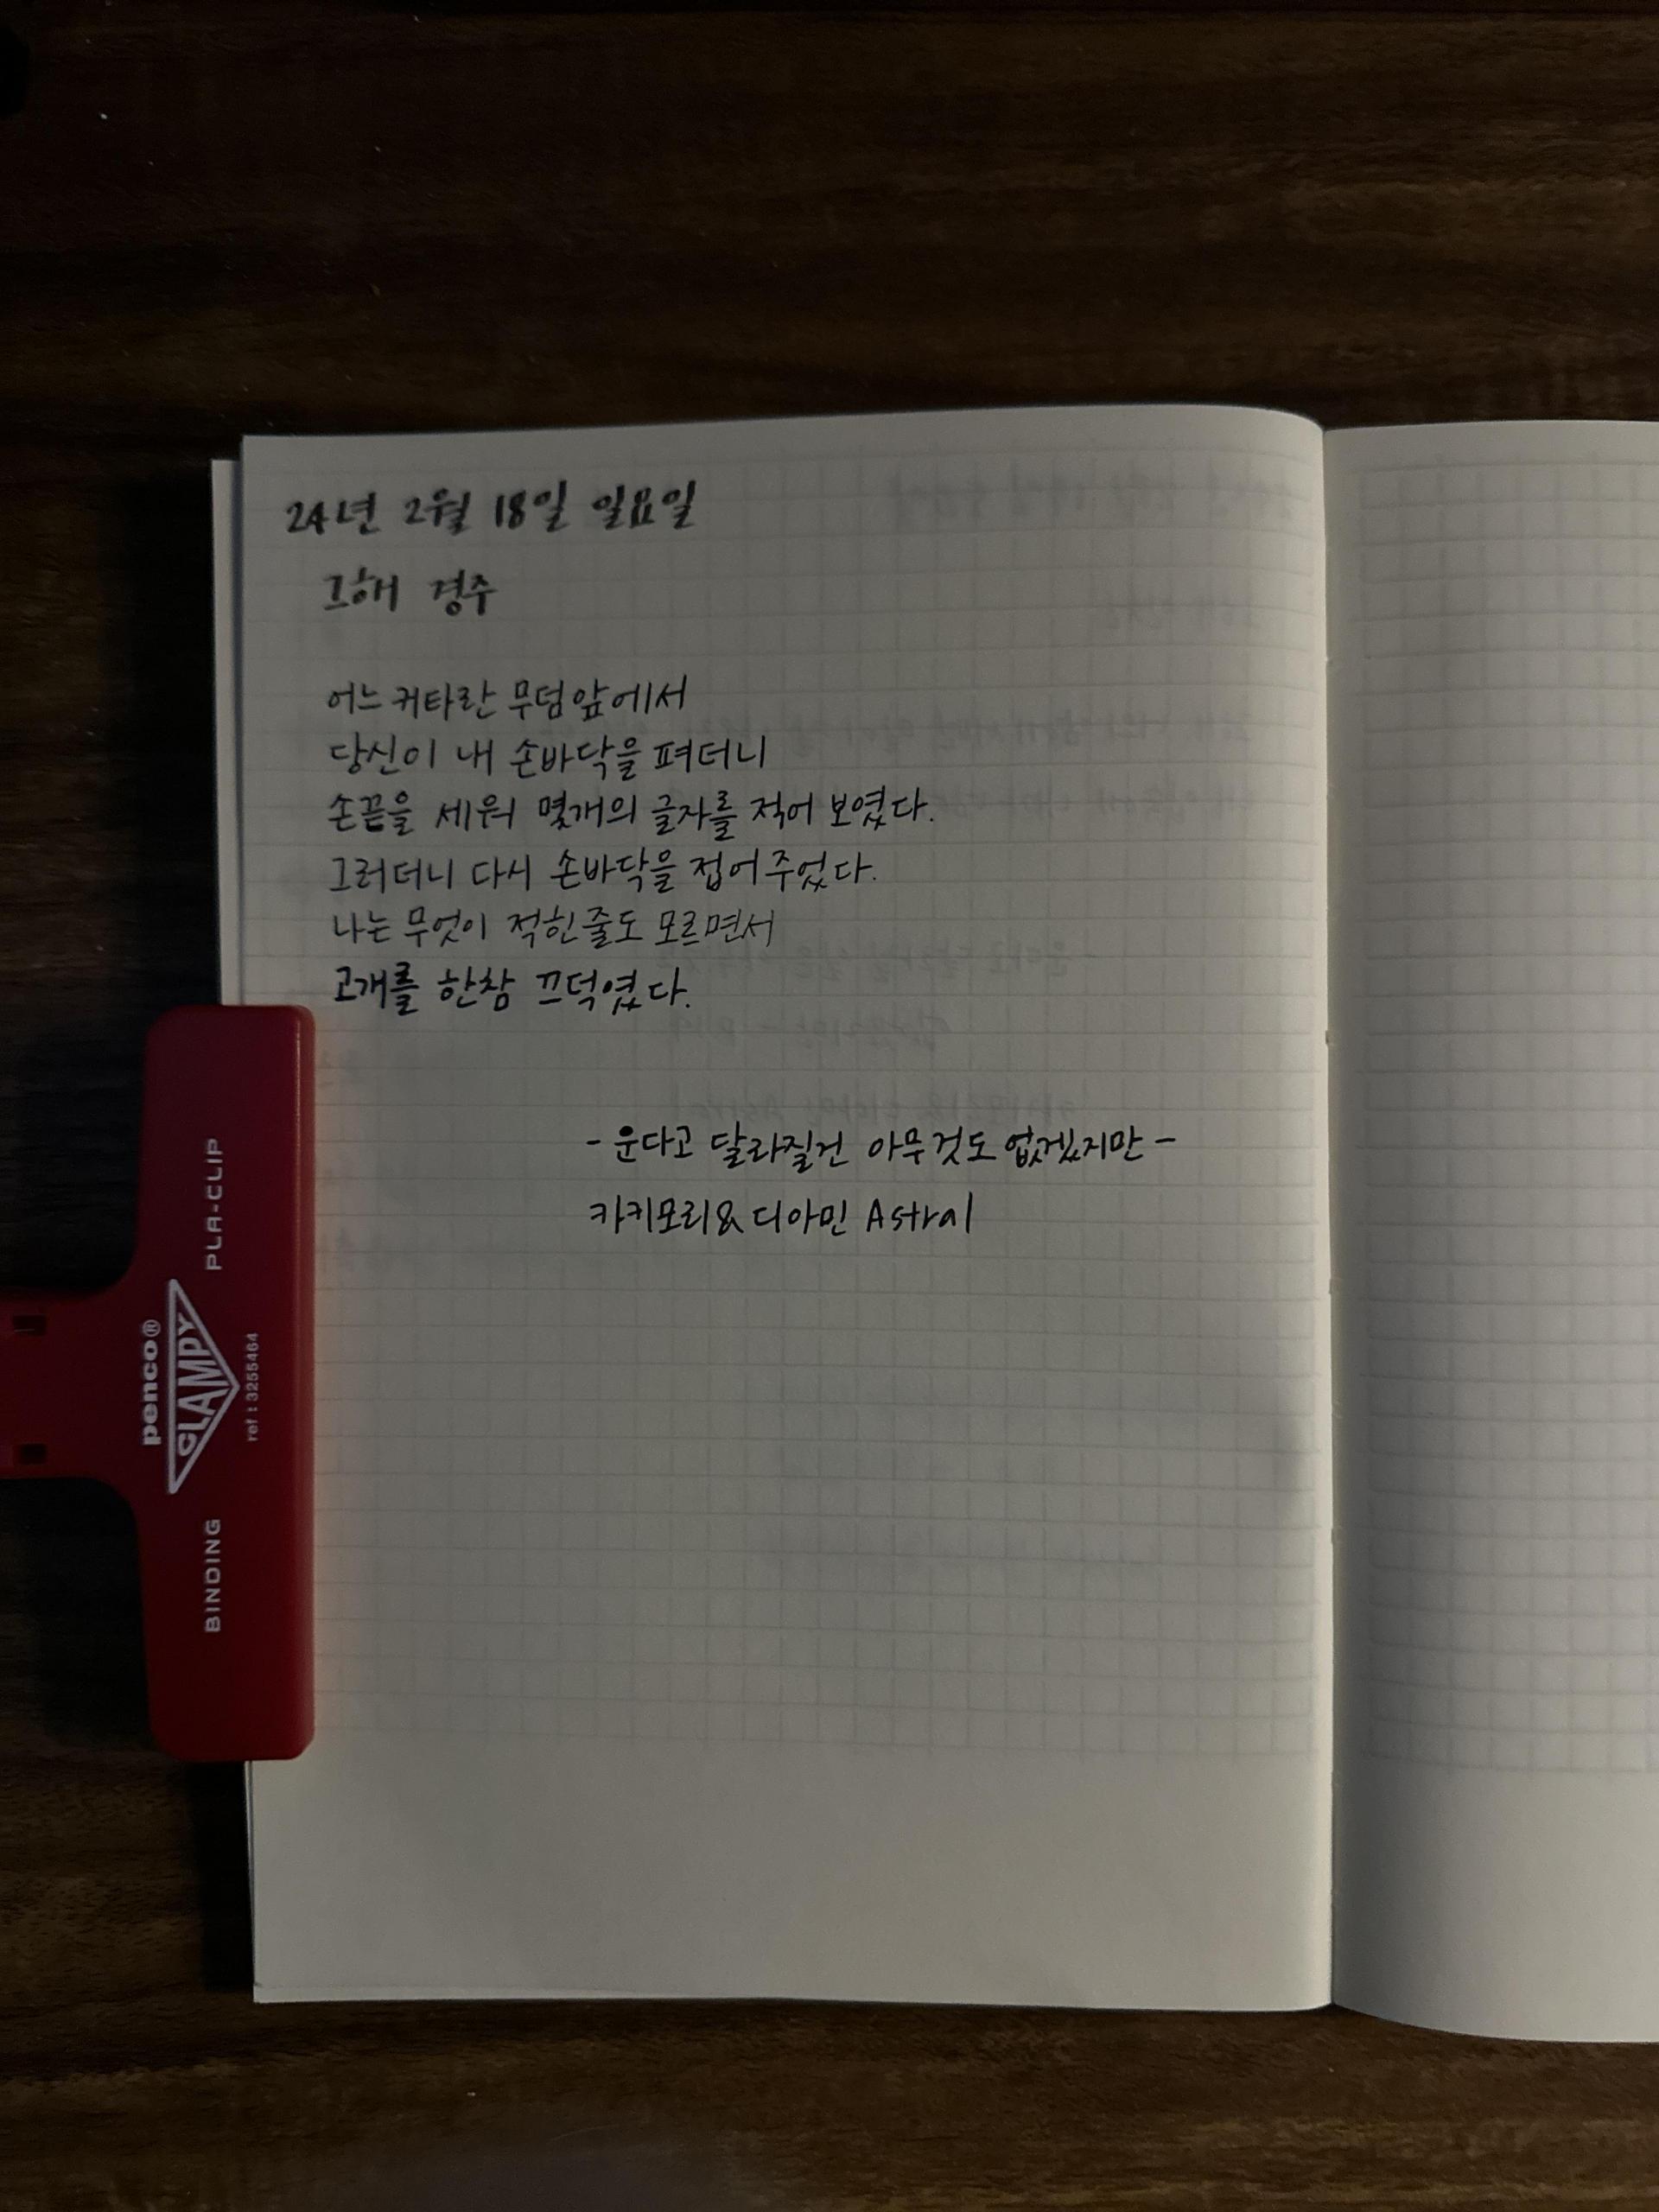 24년 2월 18일 일요일
그해 경주
어느 커타란 무덤 앞에서
당신이 내 손바닥을 펴더니
손끝을 세워 몇개의 글자를 적어 보였다.
그러더니 다시 손바닥을 접어주었다.
나는 무엇이 적힌줄도 모르면서
고개를 한참 끄덕였다.
- 운다고 달라질건 아무것도 없겠지만 -
카키모리& 디아민 Astral
PLA-CLIP
penco®
CLAMPY
ref : 3255464
BINDING